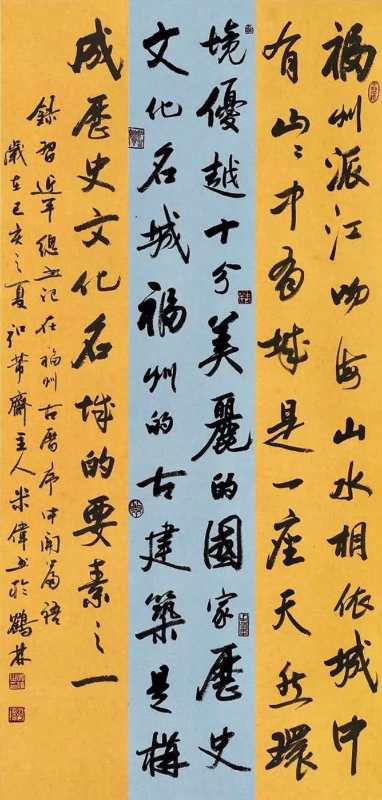 福州派江吻海山水相依城中
有山山中有城是一座天然環
境優越十分美麗的國家歷史
文化名城福州的古建築是構
成歷史文化名城的要素之一
錄習近平總書記在福州古厝序中開篇語
歲在己亥之夏 帶齋主人米偉書於鶴林